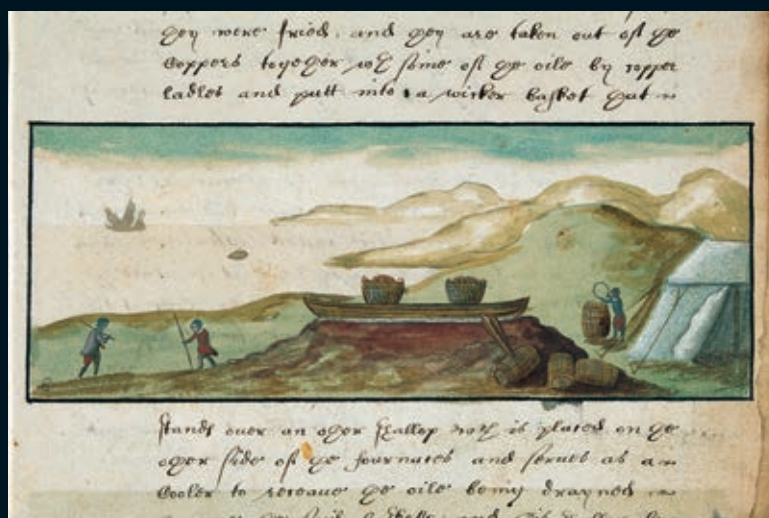 yey were fried, and yey are taken out of ye
Coppers togeyer wth some of ye oile by copper
ladles and putt into a wicker basket yat
stands over an oyer shallop wch is placed on ye
oyer side of ye fournaces and serves as a
Cooler to receaue ye oile being drayned